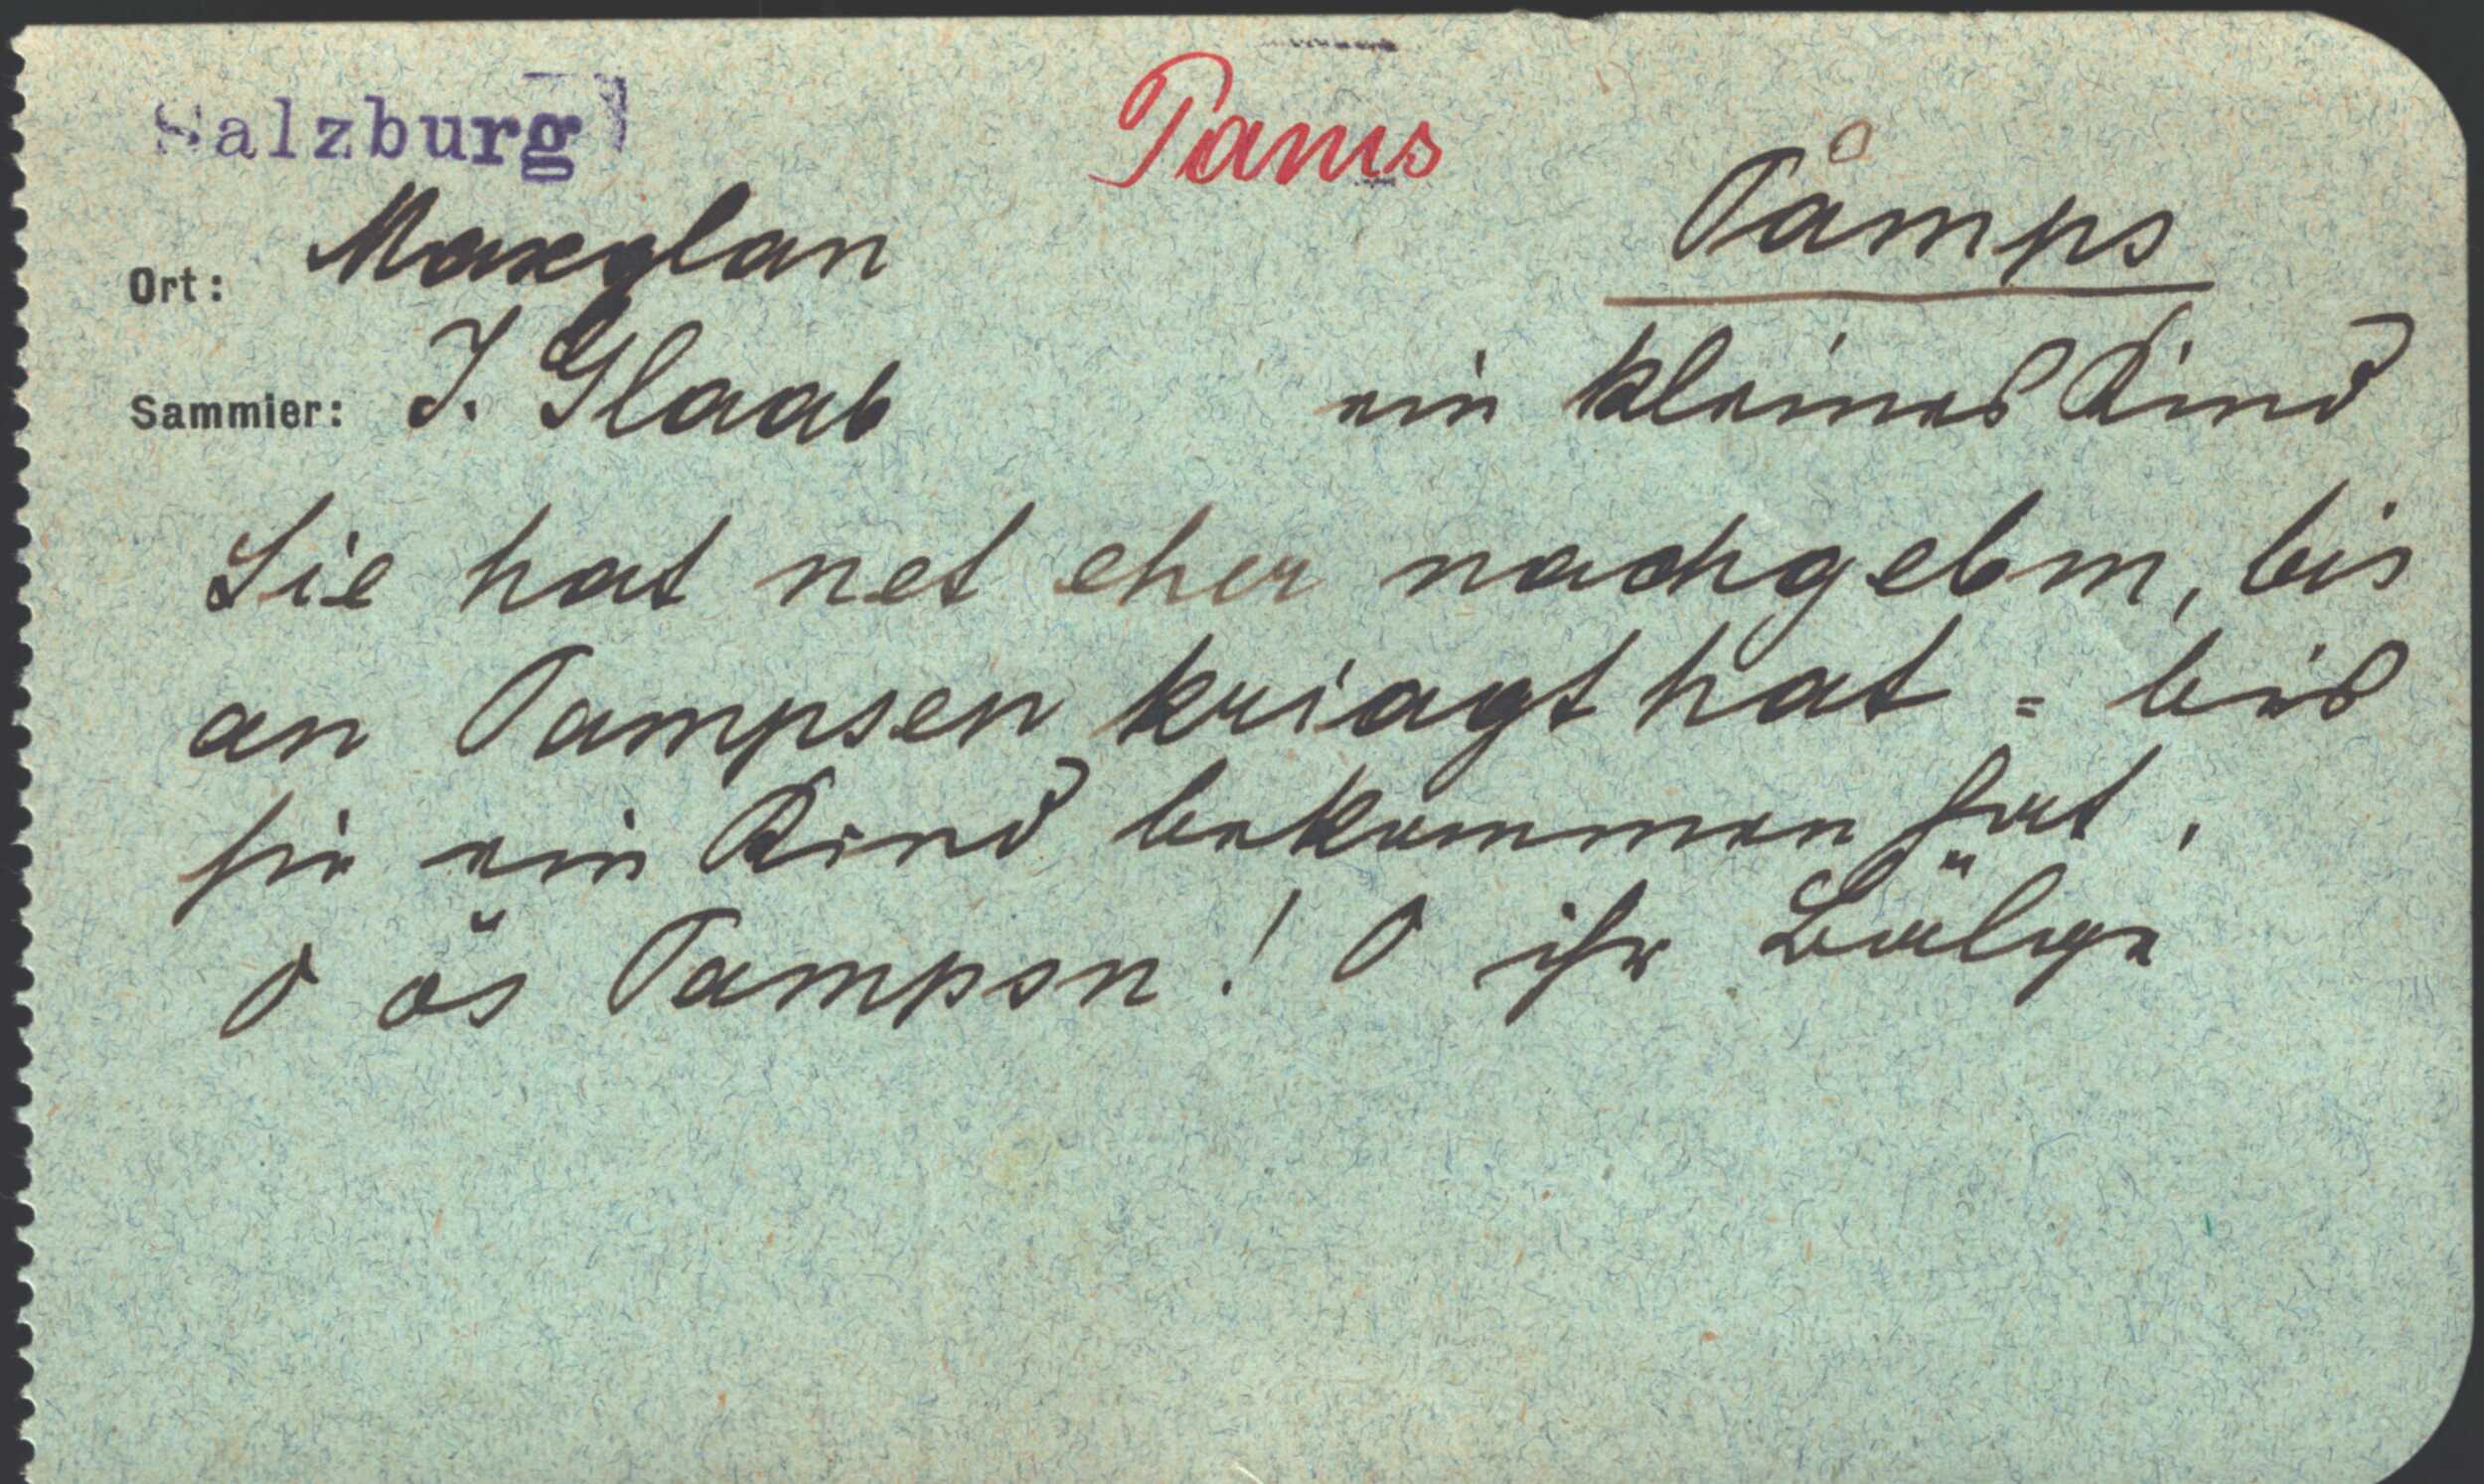 Salzburg
Pams
Påmps
Ort: Maxglan
Sammler: J. Glaab
ein kleines Kind
Sie hat net eher nachgebm, bis
an Pampsen kriagt hat = bis
sie ein Kind bekommen hat,
O ös Pampsn! O ihr Bälge